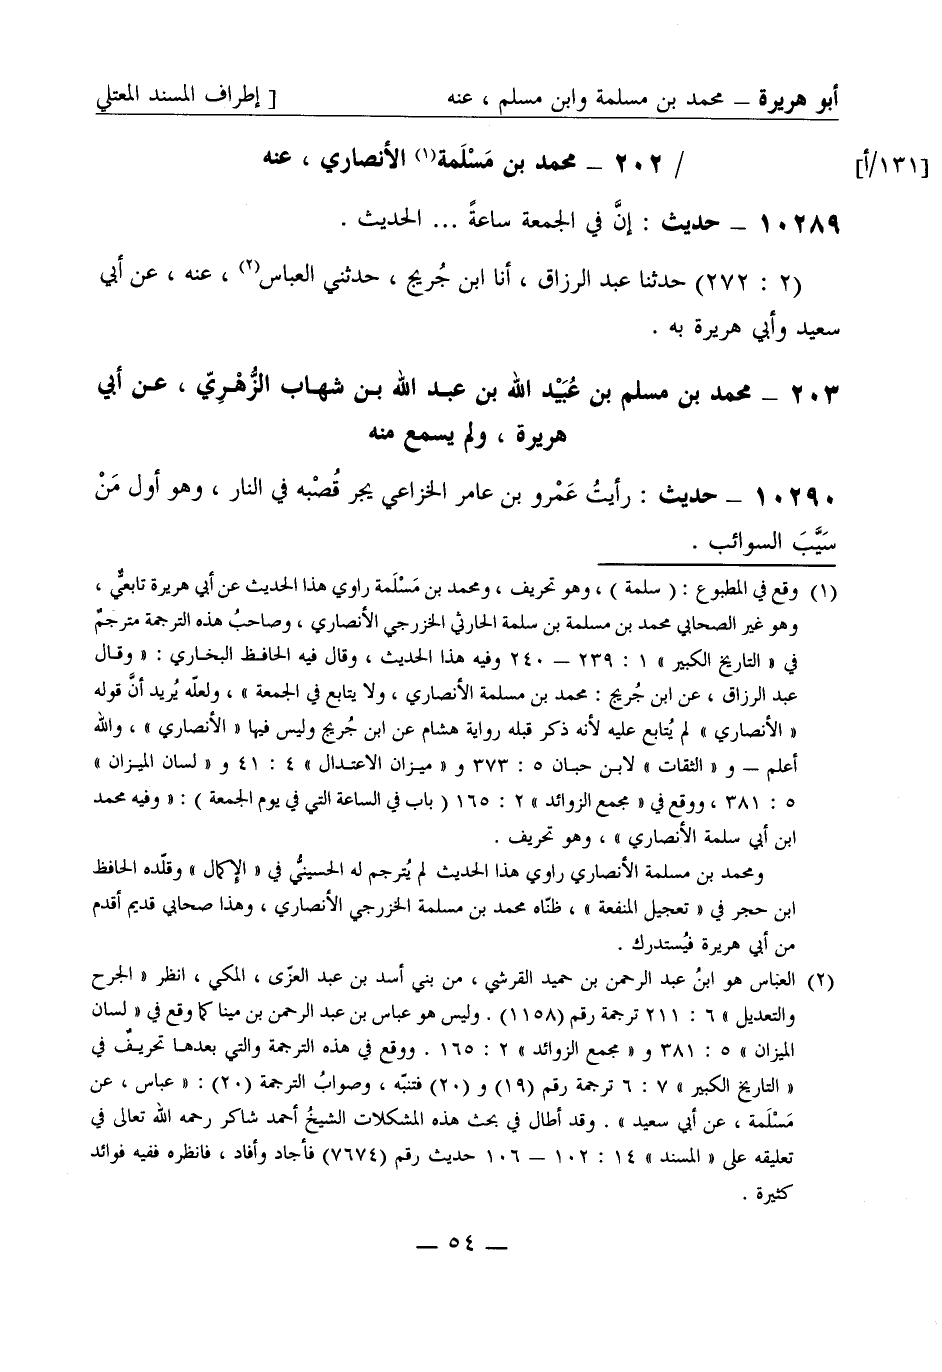 أبو هريرة ــ محمد بن مسلمة وابن مسلم ، عنه [ إطراف المسند المعتلي
[١٣١/أ] / ٢٠٢ ــ محمد بن مَسْلَمة(١) الأنصاري ، عنه
١٠٢٨٩ ــ حديث : إنَّ في الجمعة ساعةً ... الحديث .
(٢ : ٢٧٢) حدثنا عبد الرزاق ، أنا ابن جُريج ، حدثني العباس(٢) ، عنه ، عن أبي
سعيد وأبي هريرة به .
٢٠٣ ــ محمد بن مسلم بن عُبَيْد الله بن عبد الله بن شهاب الزُّهْرِيّ ، عن أبي
هريرة ، ولم يسمع منه
١٠٢٩٠ ــ حديث : رأيتُ عَمْرو بن عامر الخزاعي يجر قُصْبه في النار ، وهو أول مَنْ
سَيَّبَ السوائب .
(١) وقع في المطبوع : ( سلمة ) ، وهو تحريف ، ومحمد بن مَسْلَمة راوي هذا الحديث عن أبي هريرة تابعيٌّ ،
وهو غير الصحابي محمد بن مسلمة بن سلمة الحارثي الخزرجي الأنصاري ، وصاحبُ هذه الترجمة مترجمٌ
في « التاريخ الكبير » ١ : ٢٣٩ ــ ٢٤٠ وفيه هذا الحديث ، وقال فيه الحافظ البخاري : « وقال
عبد الرزاق ، عن ابن جُريج : محمد بن مسلمة الأنصاري ، ولا يتابع في الجمعة » ، ولعلّه يُريد أنَّ قوله
« الأنصاري » لم يُتابع عليه لأنه ذكر قبله رواية هشام عن ابن جُريج وليس فيها « الأنصاري » ، والله
أعلم ــ و « الثقات » لابن حبان ٥ : ٣٧٣ و « ميزان الاعتدال » ٤ : ٤١ و « لسان الميزان »
٥ : ٣٨١ ، ووقع في « مجمع الزوائد » ٢ : ١٦٥ ( باب في الساعة التي في يوم الجمعة ) : « وفيه محمد
ابن أبي سلمة الأنصاري » ، وهو تحريف .
ومحمد بن مسلمة الأنصاري راوي هذا الحديث لم يُترجم له الحسينيُّ في « الإكمال » وقلّده الحافظ
ابن حجر في « تعجيل المنفعة » ، ظنّاه محمد بن مسلمة الخزرجي الأنصاري ، وهذا صحابي قديم أقدم
من أبي هريرة فيُستدرك .
(٢) العباس هو ابنُ عبد الرحمن بن حميد القرشي ، من بني أسد بن عبد العزّى ، المكي ، انظر « الجرح
والتعديل » ٦ : ٢١١ ترجمة رقم (١١٥٨) . وليس هو عباس بن عبد الرحمن بن مينا كما وقع في « لسان
الميزان » ٥ : ٣٨١ و « مجمع الزوائد » ٢ : ١٦٥ . ووقع في هذه الترجمة والتي بعدها تحريفٌ في
« التاريخ الكبير » ٧ : ٦ ترجمة رقم (١٩) و (٢٠) فتنبّه ، وصوابُ الترجمة (٢٠) : « عباس ، عن
مَسْلَمة ، عن أبي سعيد » . وقد أطال في بحث هذه المشكلات الشيخُ أحمد شاكر رحمه الله تعالى في
تعليقه على « المسند » ١٤ : ١٠٢ ــ ١٠٦ حديث رقم (٧٦٧٤) فأجاد وأفاد ، فانظره ففيه فوائد
كثيرة .
ــ ٥٤ ــ